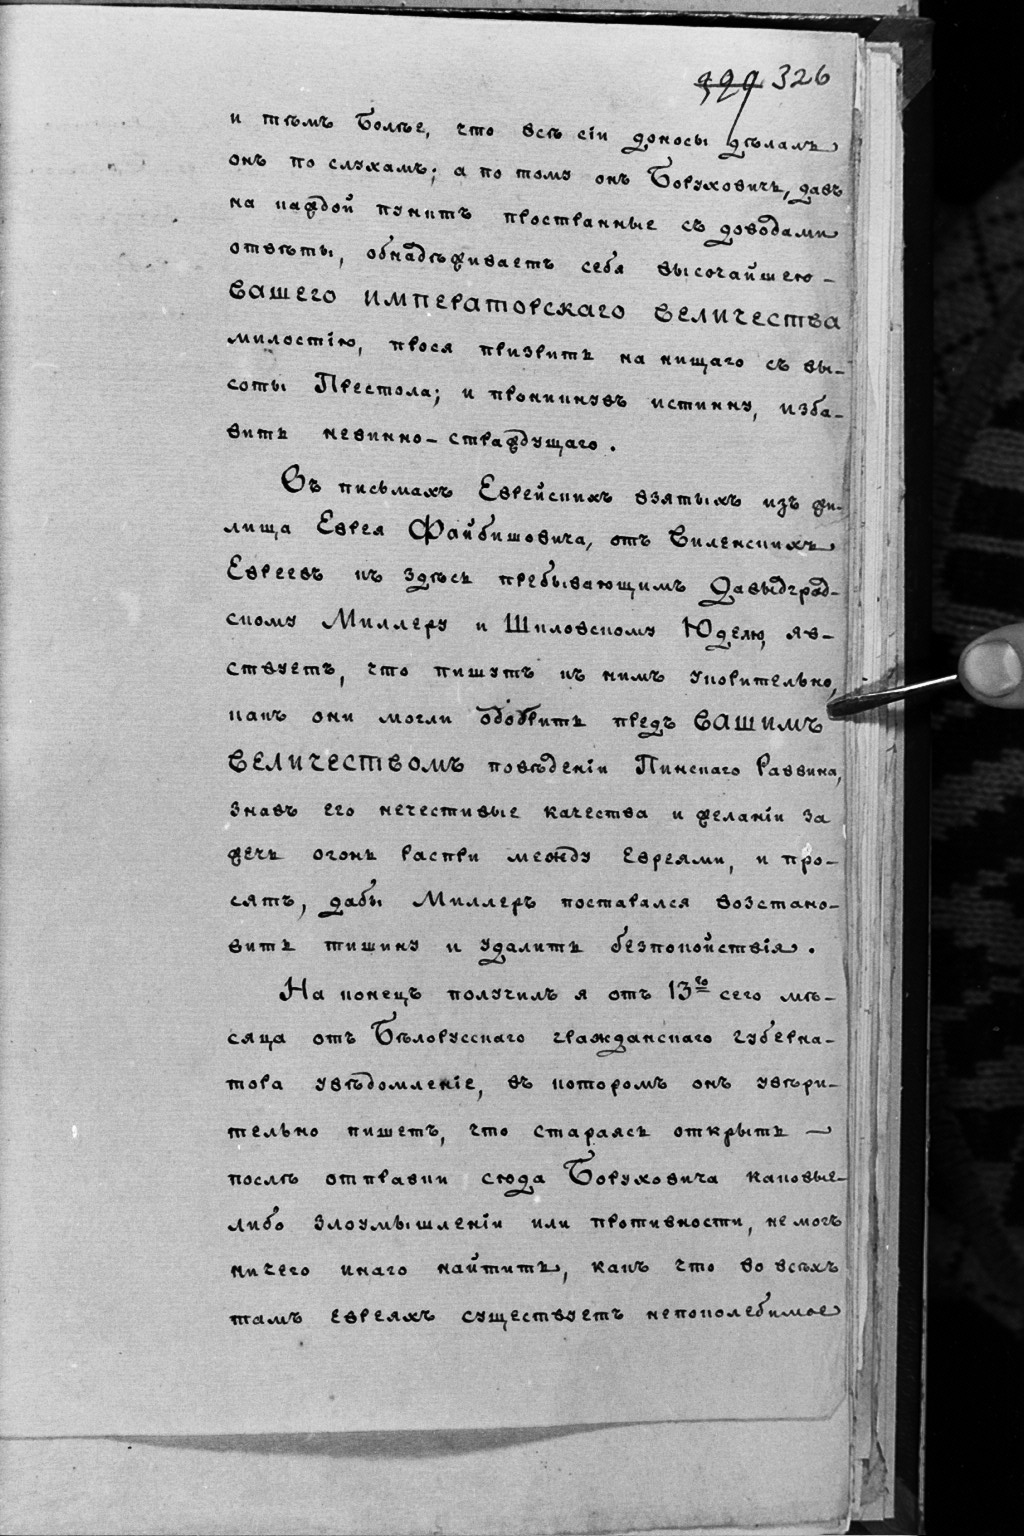 329 326
и тѣмъ болѣе, что всѣ сіи доносы дѣлалъ
онъ по слухамъ; а по тому онъ Боруховичь, давъ
на каждой пунктъ пространные съ доводами
отвѣты, обнадѣживаетъ себя высочайшею –
ВАШЕГО ИМПЕРАТОРСКАГО ВЕЛИЧЕСТВА
милостію, прося призрить на нищаго съ вы-
соты Престола; и проникнувъ истинну, изба-
вить невинно-страждущаго.
Въ письмахъ Еврейскихъ взятыхъ изъ жи-
лища Еврея Файбишовича, отъ Виленскихъ
Евреевъ къ здѣсь пребывающимъ Давыдград-
скому Миллеру и Шкловскому Юделю, яв-
ствуетъ, что пишутъ къ нимъ укорительно,
какъ они могли одобрить предъ ВАШИМЪ
ВЕЛИЧЕСТВОМЪ повѣденіи Пинскаго Раввина,
знавъ его нечестивые качества и желаніи за
жечь огонь распри между Евреями, и про-
сятъ, дабы Миллеръ постарался возстано-
вить тишину и удалить безпокойствія.
На конецъ получилъ я отъ 13го сего мѣ-
сяца отъ Бѣлорусскаго гражданскаго губерна-
тора увѣдомленіе, въ которомъ онъ увѣри-
тельно пишетъ, что стараясь открыть –
послѣ отправки сюда Боруховича каковые-
либо злоумышленіи или противности, не могъ
ничего инаго найтить, какъ что во всѣхъ
тамъ евреяхъ существуетъ непоколебимое